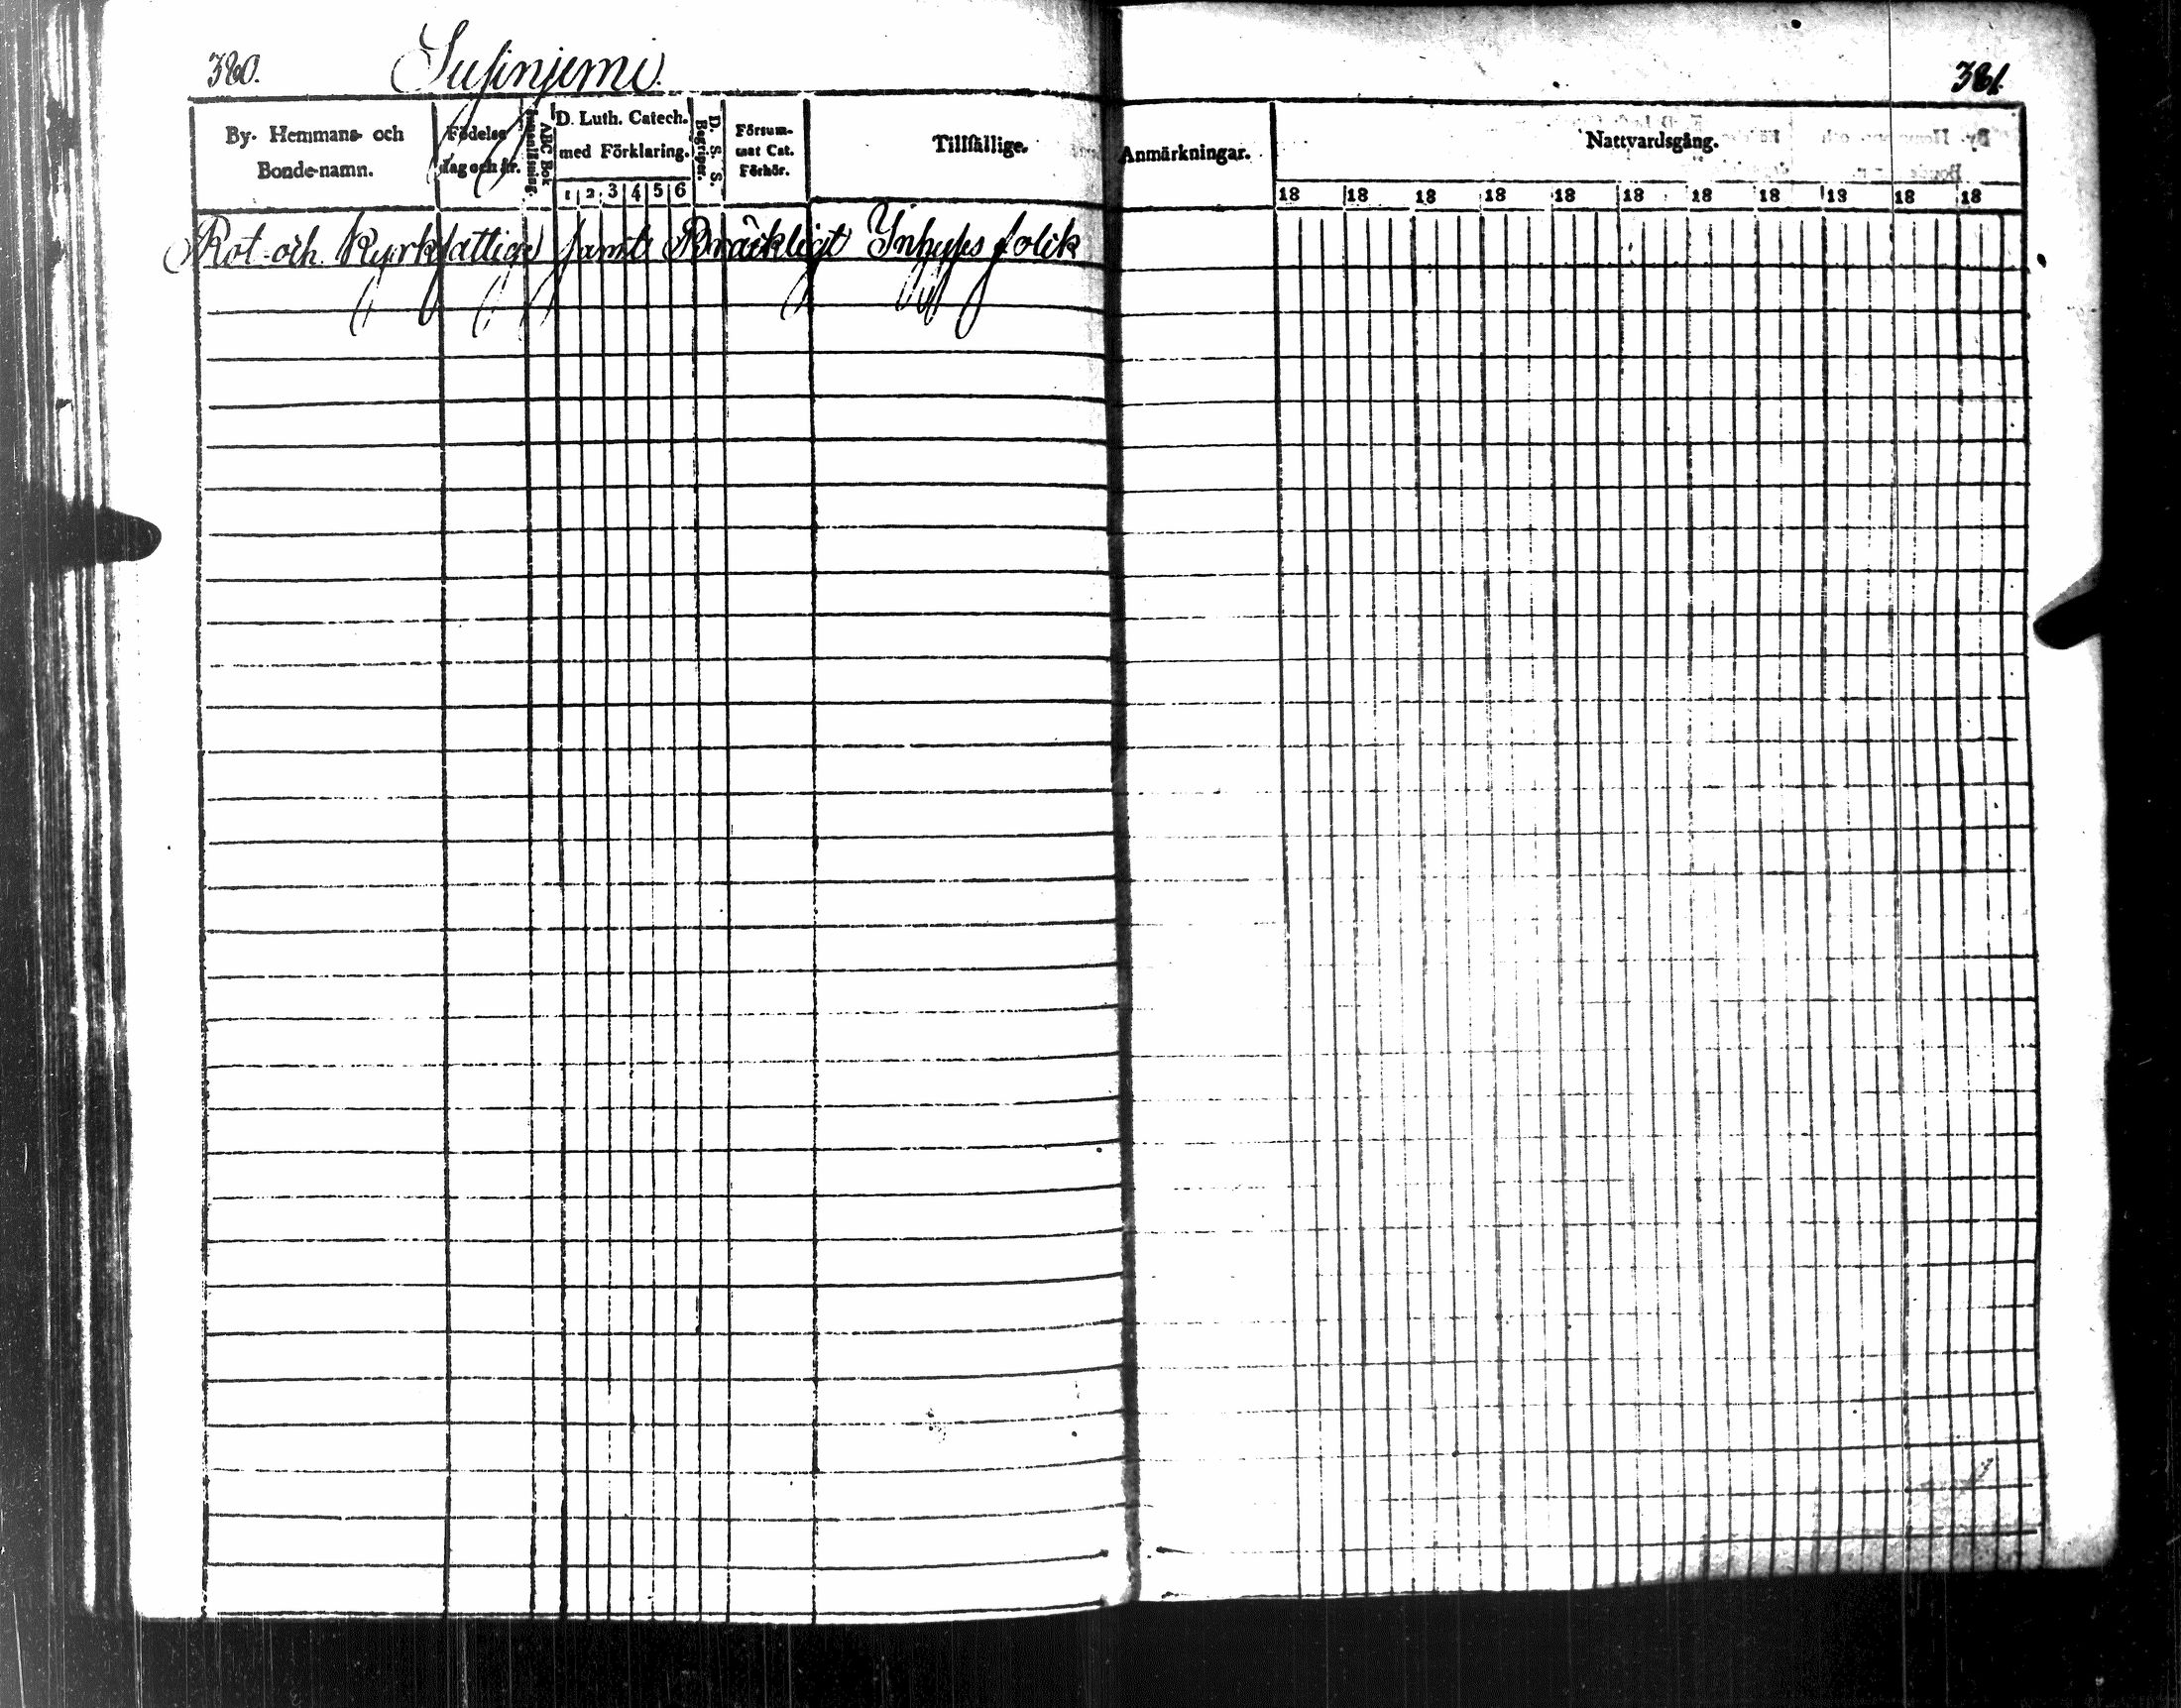 380.
Susinjemi
381.
By- Hemmans- och Bonde-namn.
Födelse dag och år.
ABC Bok
D. Luth. Catech. med Förklaring.
1 2 3 4 5 6
D. S. S. Begriper.
Försummat Cat. Förhör.
Tillfällige.
Anmärkningar.
Nattvardsgång.
18 18 18 18 18 18 18 18 18 18 18
Rot- och Kyrkfattige samt Bräckligt Inhyses folck